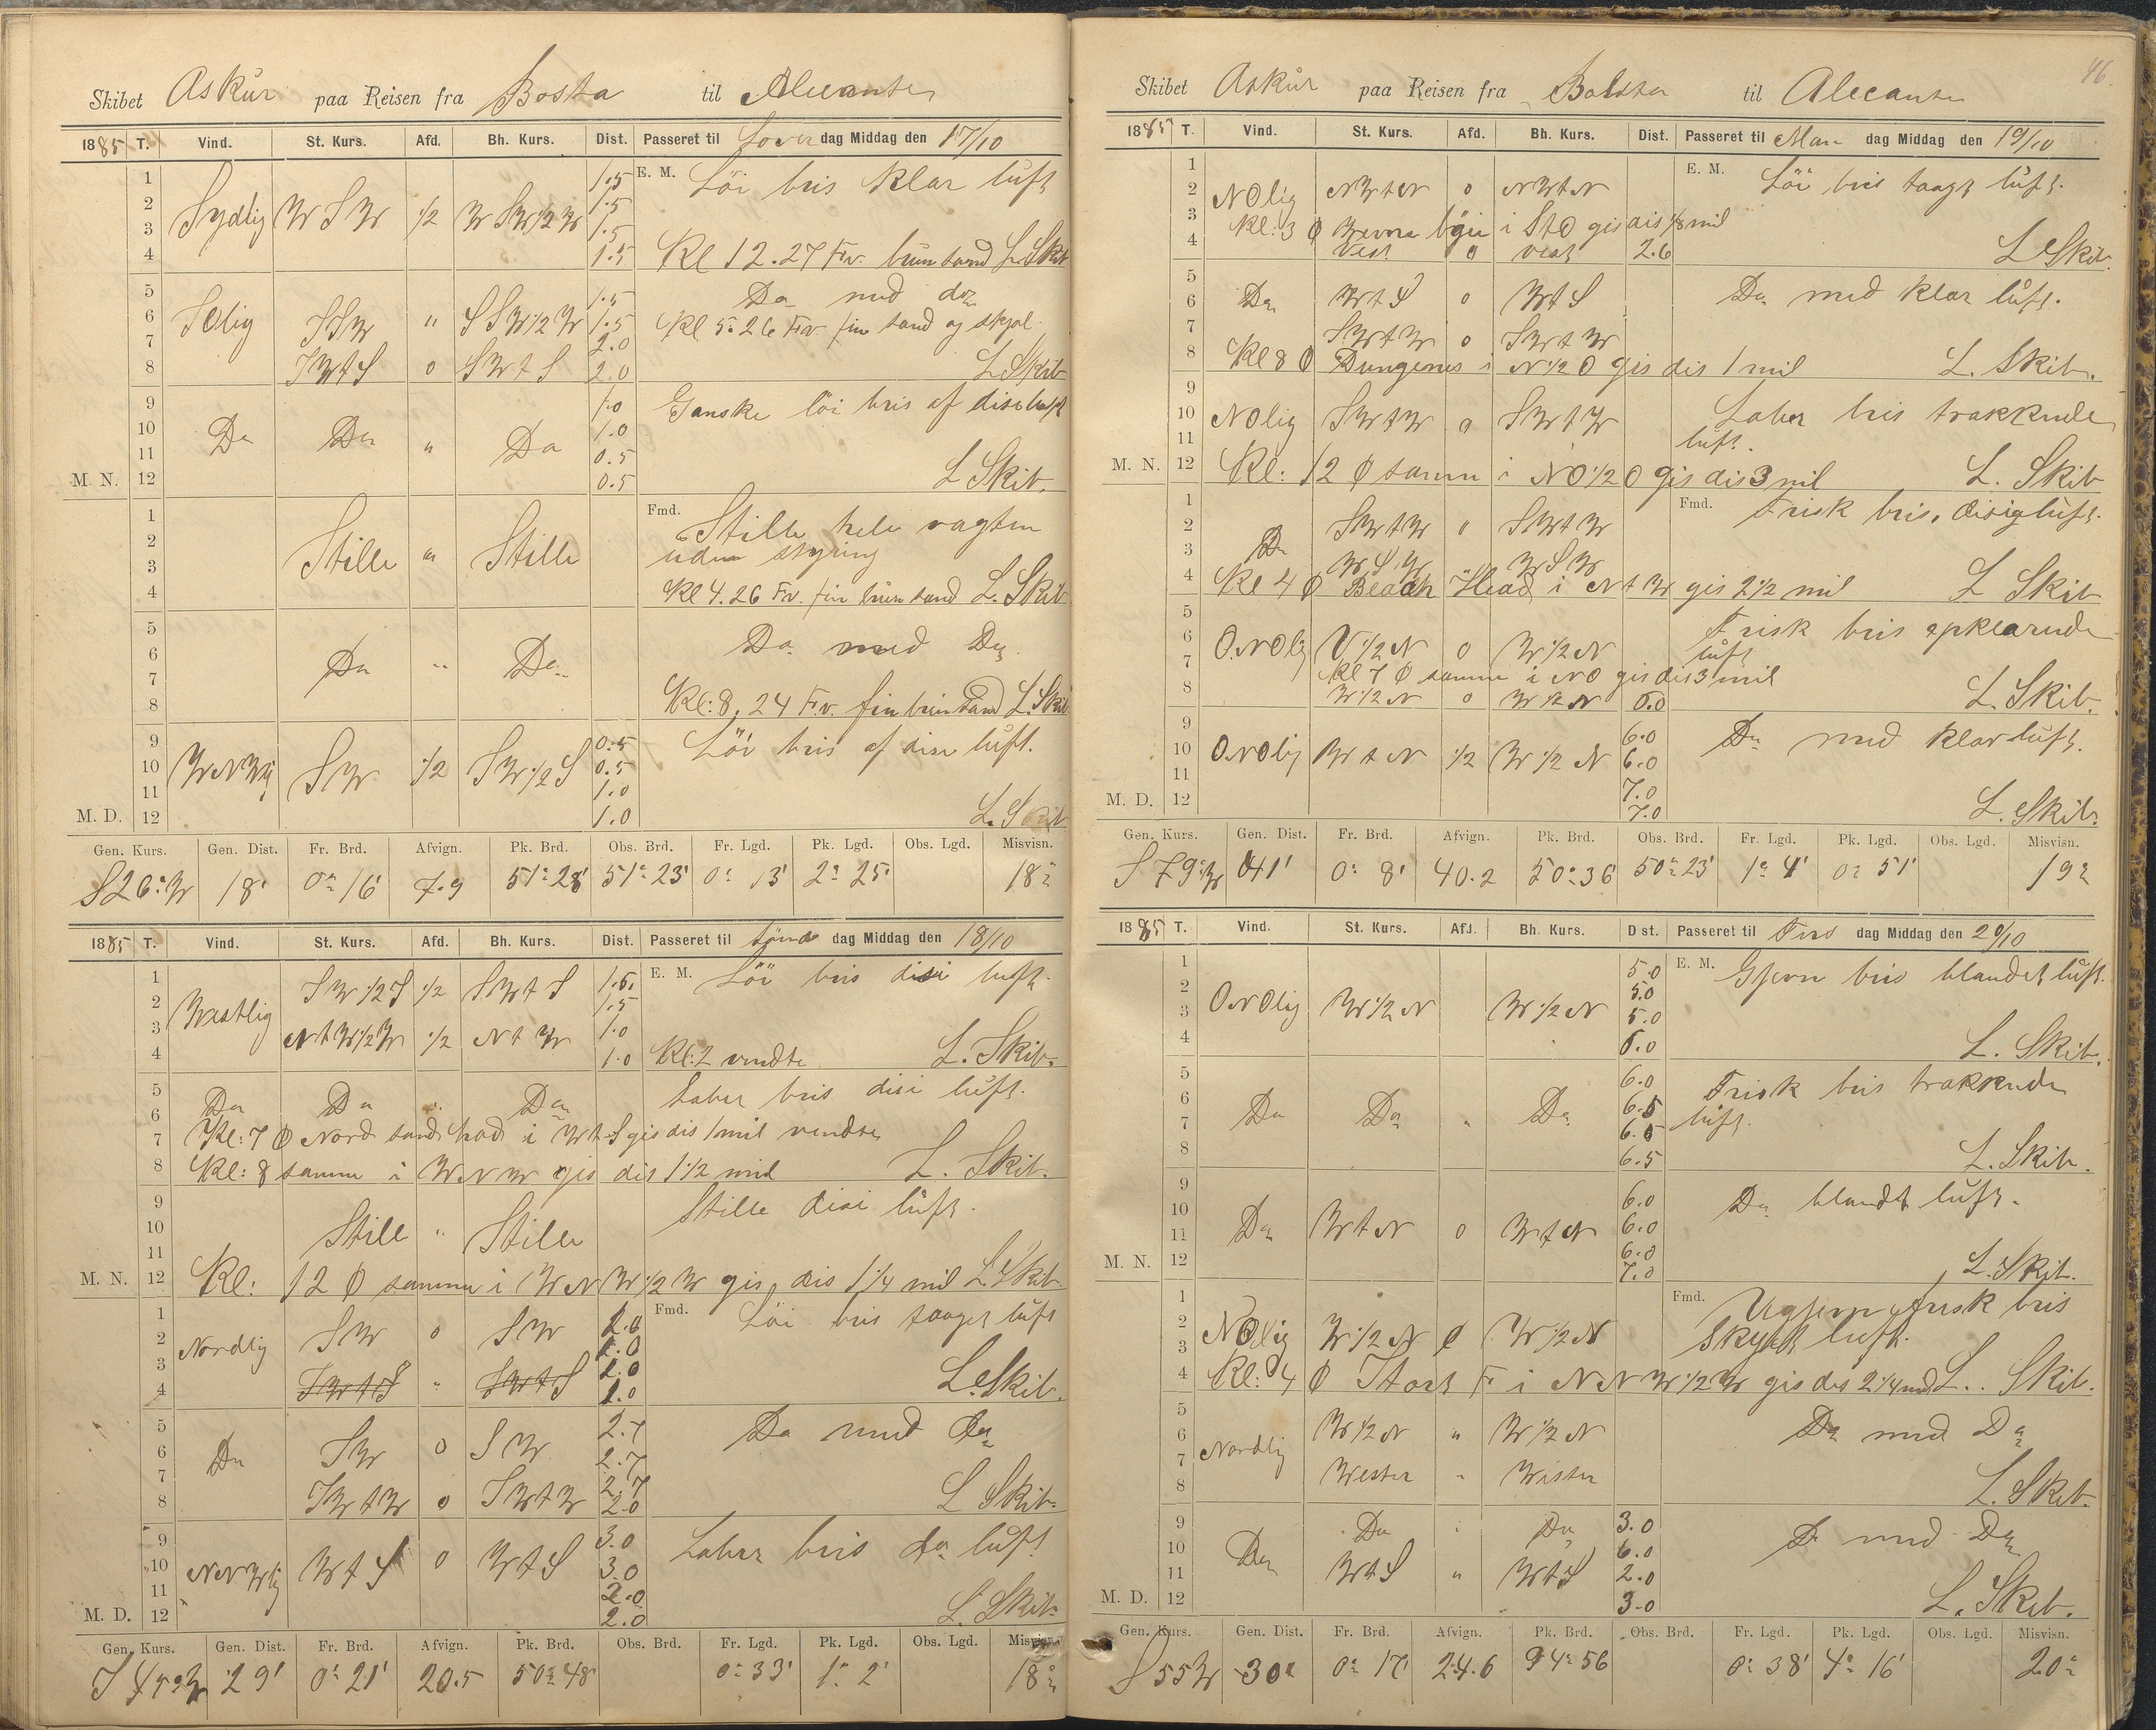 Skibet Askur paa Reisen fra Bosta til Alecante
1885 T. Vind. St. Kurs. Afd. Bh. Kurs. Dist. Passeret til Løver dag Middag den 17/10
1 1.5 E. M. Löi bris Klar luft
2 Sydlig W S W 1/2 W SW 1/2 W 1.5
3 1.5
4 1.5 Kl 12. 27 Fv. brun sand L. Skib
5 1.5 Da med do
6 SOlig SSW " SSW 1/2 W 1.5 Kl 5. 26 Fv. fin sand og skjæl
7 2.0
8 SWtS 0 SWtS 2.0 L Skib
9 1.0 Ganske löi bris af disi luft
10 Da Da " Da 1.0
11 0.5
M. N. 12 0.5 L Skib.
1 Fmd. Stille hele vagten
2 Stille " Stille uden styring
3
4 Kl 4. 26 Fv. fin brun sand L. Skib
5
6 Da " Da Da med Da
7
8 Kl: 8. 24 Fv. fin brun sand L. Skib
9 0.5 Löi bris af disi luft.
10 WNWlig SW 1/2 SW 1/2 S 0.5
11 1.0
M. D. 12 1.0 L. Skib
Gen. Kurs. Gen. Dist. Fr. Brd. Afvign. Pk. Brd. Obs. Brd. Fr. Lgd. Pk. Lgd. Obs. Lgd. Misvisn.
S 26° W 18' 0° 16' 7.9 51° 28' 51° 23' 0° 13' 2° 25' 18°
1885 T. Vind. St. Kurs. Afd. Bh. Kurs. Dist. Passeret til Sønd dag Middag den 18/10
1 SW 1/2 S 1/2 SWtS 1.5 E. M. Löi bris disi luft.
2 Westlig 1.5
3 NtW 1/2 W 1/2 NtW 1.0
4 1.0 Kl: 2 vendte L. Skib.
5 Laber bris disi luft.
6 Da Da " Da
7 Kl: 7 Ø Nord sand had i WtS gis dis 1 mil vendte
8 Kl: 8 samme i WNW gis dis 1 1/2 mil L. Skib.
9 Stille disi luft.
10 Still " Stille
11
M. N. 12 Kl: 12 Ø samme i WNW 1/2 W gis dis 1 1/4 mil L. Skib.
1 SW 0 SW 2.0 Fmd. Löi bris taaget luft
2 Nordlig 1.0
3 1.0
4 SWtS " SWtS 1.0 L. Skib.
5 2.7 Da med da
6 Da SW 0 SW 2.7
7 2.7
8 SWtW 0 SWtW 2.0 L Skib.
9 3.0 Laber bris da luft
10 NNWlig WtS 0 WtS 3.0
11 2.0
M. D. 12 2.0 L. Skib.
Gen. Kurs. Gen. Dist. Fr. Brd. Afvign. Pk. Brd. Obs. Brd. Fr. Lgd. Pk. Lgd. Obs. Lgd. Misvisn.
S 45° W 29' 0° 21' 20.5 50° 48' 0° 33' 1° 2' 18°
46.
Skibet Askur paa Reisen fra Bolsta til Alecante
1885 T. Vind. St. Kurs. Afd. Bh. Kurs. Dist. Passeret til Man dag Middag den 19/10
1 E. M. Löi bris taagt luft.
2 NOlig NWtN 0 NWtN
3 Kl: 3 Ø böie i StO gis dis 1/8 mil
4 Vest 0 vest 2.6 L Skib.
5
6 Da WtS 0 WtS Da med klar luft.
7 SWtW 0 SWtW
8 Kl 8 Ø Dungenes i N 1/2 O gis dis 1 mil L. Skib.
9
10 NOlig SWtW 0 SWtW Laber bris trækkende
11 luft.
M. N. 12 Kl: 12 Ø samme i NO 1/2 O gis dis 3 mil L. Skib
1 Fmd. Frisk bris, disig luft.
2 SWtW 0 SWtW
3 Da WSW WSW
4 Kl 4 Ø Beach Head i NtW gis 2 1/2 mil L Skib
5 Frisk bris opklarende
6 ONOlig V 1/2 N 0 W 1/2 N luft
7 Kl 7 Ø samme i NO gis dis 3 mil
8 W 1/2 N 0 W 1/2 N 6.0 L. Skib.
9 6.0 Da med klar luft.
10 ONOlig WtN 1/2 W 1/2 N 6.0
11 7.0
M. D. 12 7.0 L. Skib.
Gen. Kurs. Gen. Dist. Fr. Brd. Afvign. Pk. Brd. Obs. Brd. Fr. Lgd. Pk. Lgd. Obs. Lgd. Misvisn.
S 79° W 41' 0° 8' 40.2 50° 36' 50° 23' 1° 4' 0° 51' 19°
1885 T. Vind. St. Kurs. Afd. Bh. Kurs. Dist. Passeret til Tirs dag Middag den 20/10
1 5.0 E. M. Gjevn bris blandet luft.
2 5.0
3 ONOlig W 1/2 N W 1/2 N 5.0
4 6.0 L. Skib.
5 6.0 Frisk bris trækkende
6 Da Da " Da 6.5 luft.
7 6.5
8 6.5 L. Skib.
9 6.0 Da blandt luft.
10 Da WtN 0 WtN 6.0
11 6.0
M. N. 12 7.0 L. Skib.
1 Fmd. Ugjevn frisk bris
2 NOlig W 1/2 N 0 W 1/2 N skyet luft.
3
4 Kl: 4 Ø Start F. i NNW 1/2 W gis dis 2 1/4 mil L. Skib.
5
6 W 1/2 N " W 1/2 N Da med Da
7 Nordlig
8 Wester " Wester L. Skib.
9 Da Da 3.0
10 Da 6.0 Da med Da
11 WtS " WtS 2.0
M. D. 12 3.0 L. Skib.
Gen. Kurs. Gen. Dist. Fr. Brd. Afvign. Pk. Brd. Obs. Brd. Fr. Lgd. Pk. Lgd. Obs. Lgd. Misvisn.
S 55 W 30' 0° 17' 24.6 94° 56 0° 38' 4° 16' 20°